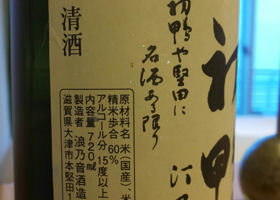 初鴨
初鴨や堅田に
名酒ある限り
清酒
原材料名 米(国産)、米
精米歩合 60%
アルコール分 15度以上
内容量 720ml
製造者 浪乃音酒造
滋賀県大津市本堅田1